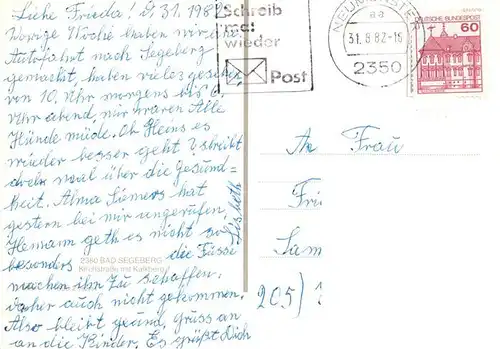 Liebe Frieda! d 31. 1982
Vorige Woche haben wir eine
Autofahrt nach Segeberg
gemacht, haben viel gesehen
von 10. Uhr morgens bis 6.
Uhr abend, wir waren Alle
Hunde müde. Ob Heins es
wieder besser geht? schreibt
doch mal über die Gesund=
heit. Alma Siemers hat
gestern bei mir angerufen,
Hemann geth es nicht so
besonders die Füsse
machen ihn zu schaffen,
daher auch nicht gekommen.
Also bleibt gesund, Gruss an
an die Kinder. Es grüßt Dich
Lisbeth
2360 BAD SEGEBERG
Kirchstraße mit Kalkberg
Schreib
mal
wieder
Post
NEUMÜNSTER
aa
31.8.82-15
2350
DEUTSCHE BUNDESPOST
60
An Frau
Fri
Sam
205)